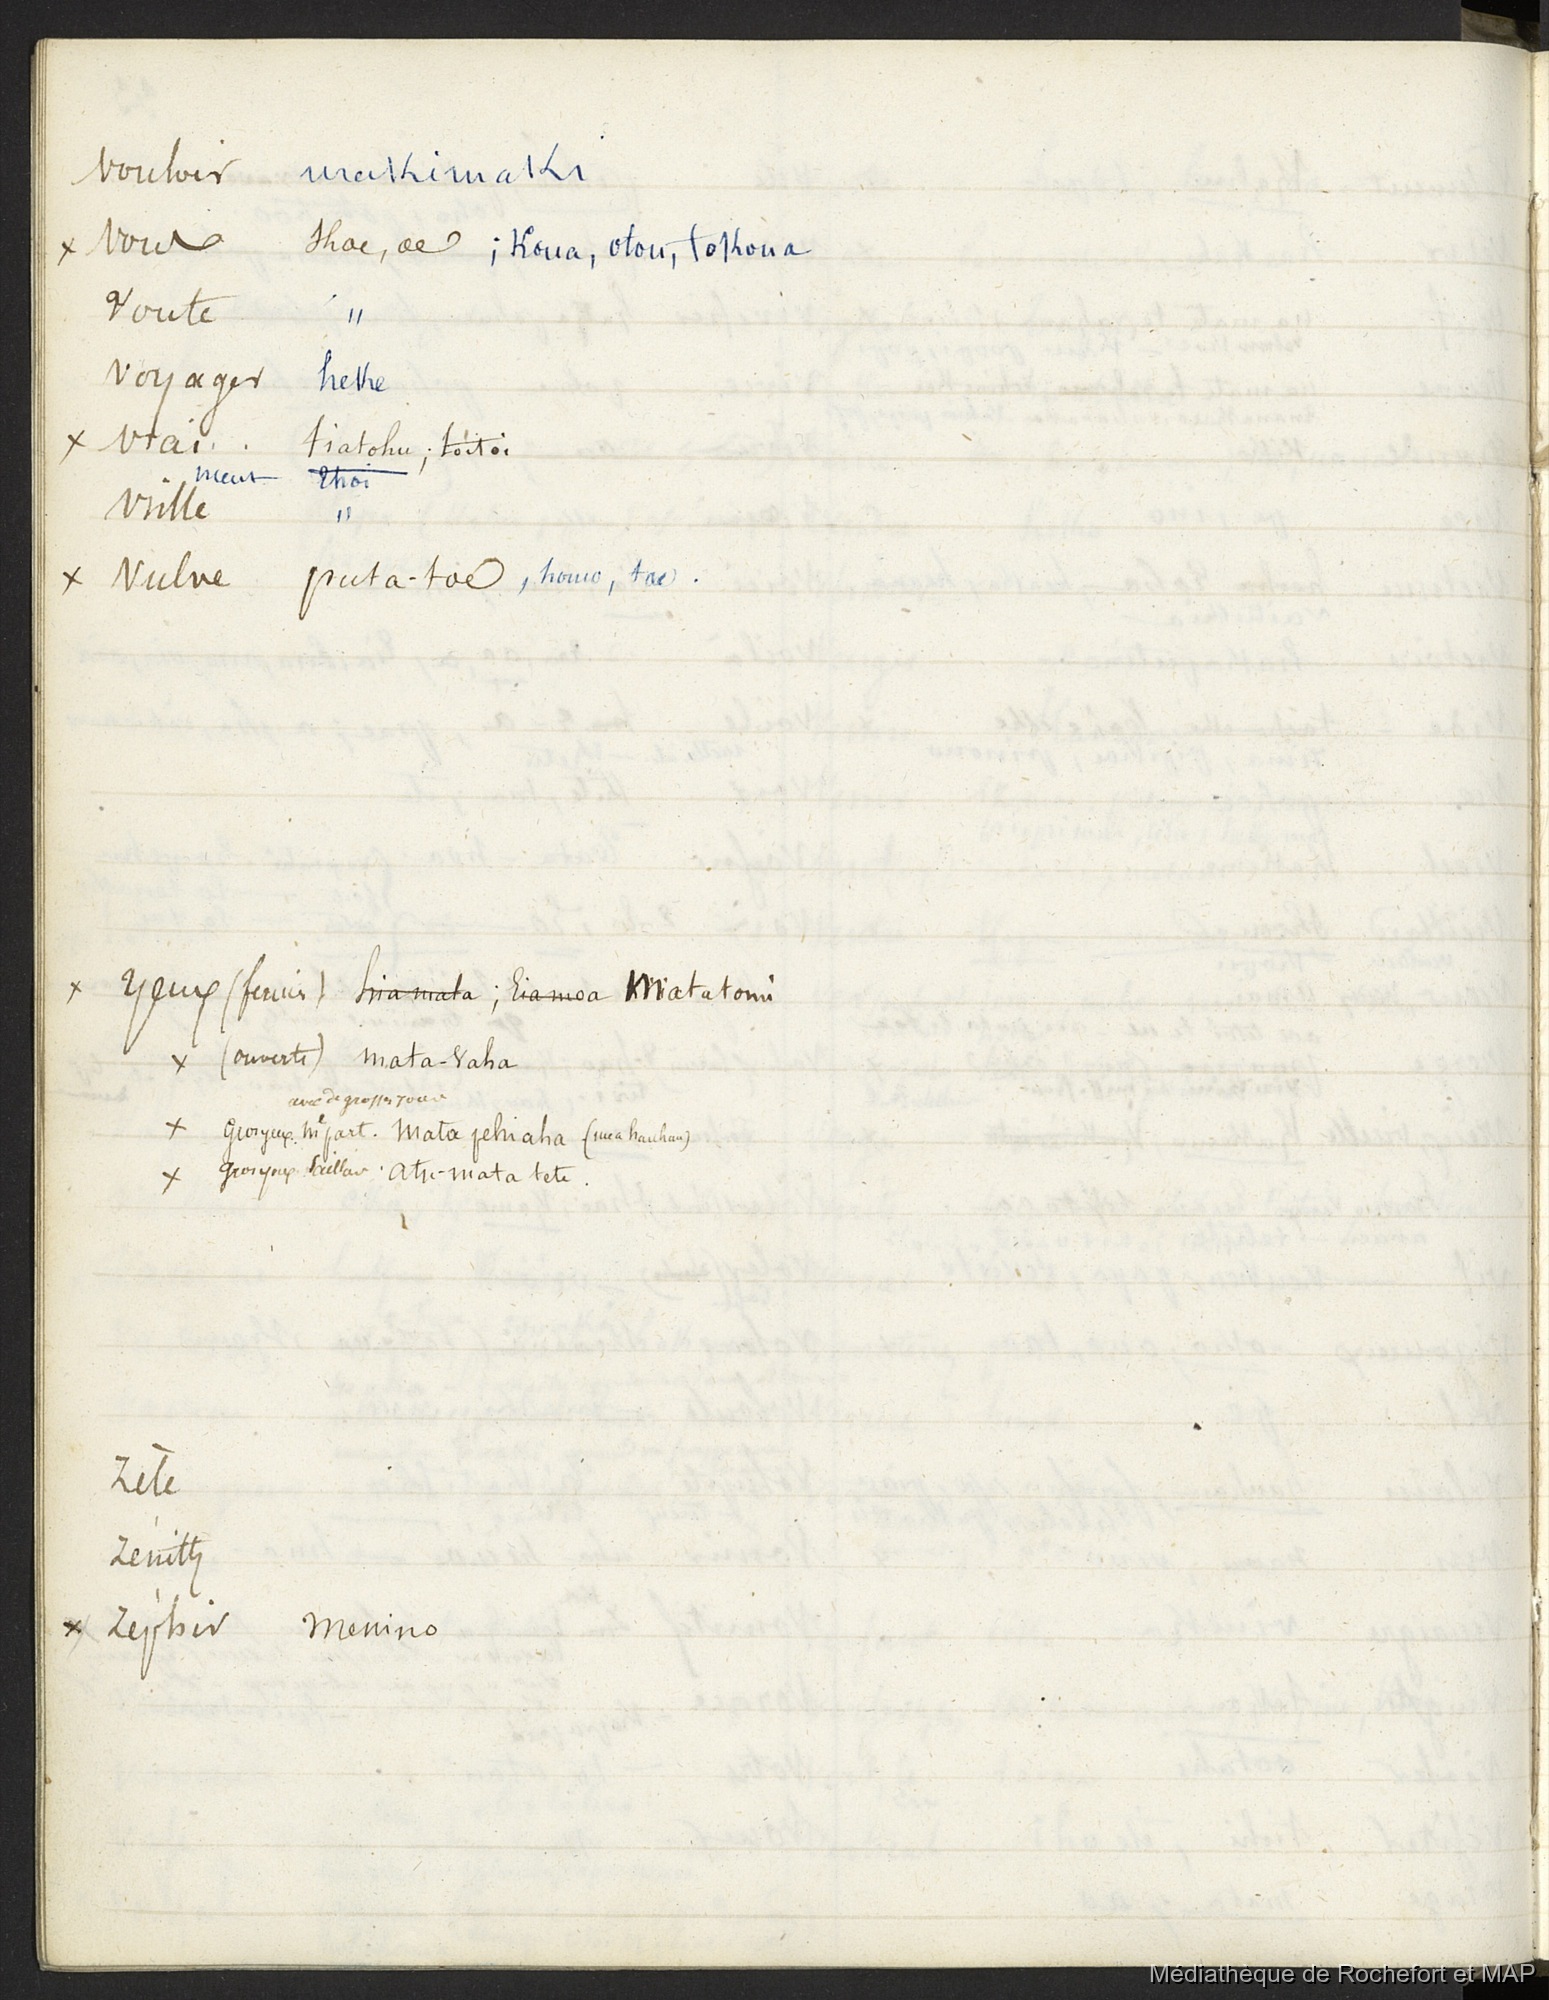 Vouloir makimaki
x Vous Khoe, oe ; Koua, otou, tokoua
Voute "
Voyager heke
x Vrai.. tiatohu ; toitoi
ment Ehoi
Vrille "
x Vulve puta-toe , homo, toe .
x Yeux (fermés) hia mata ; Eia moa Matatomi
x (ouverts) mata-vaha
avec de grosses joues
x Gros yeux. part. Mata pehiaha
x gros yeux Saillan . Atu-mata tete .
Zèle
Zénith
x Zéphir Menino
Médiathèque de Rochefort et MAP